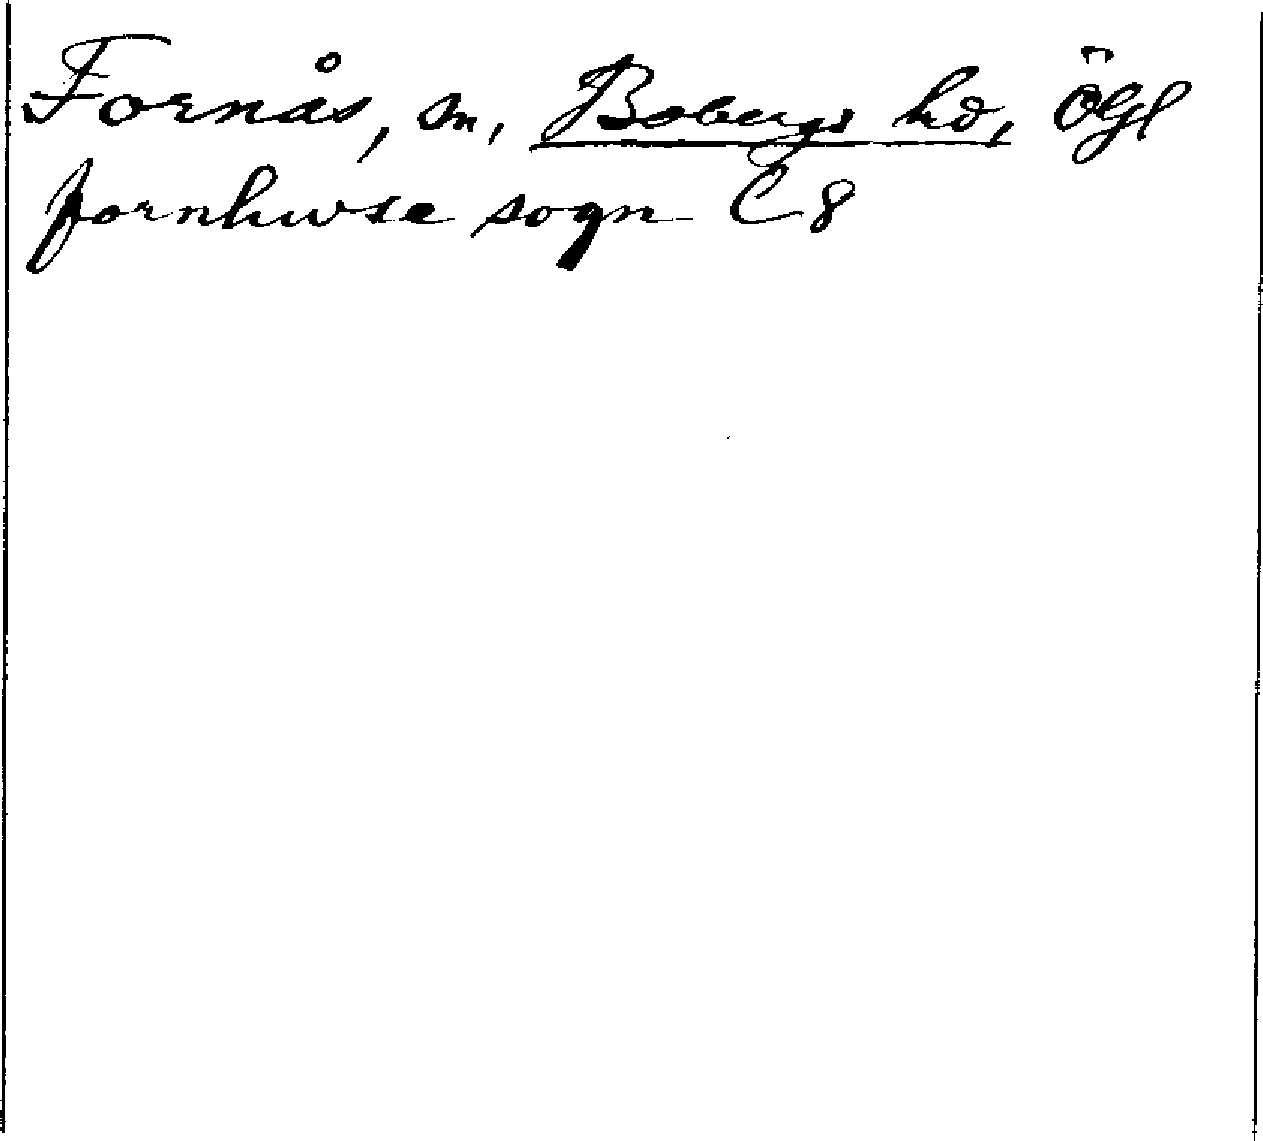 Fornås, sn, Bobergs hd, Ögl
fornhwse sogn C 8